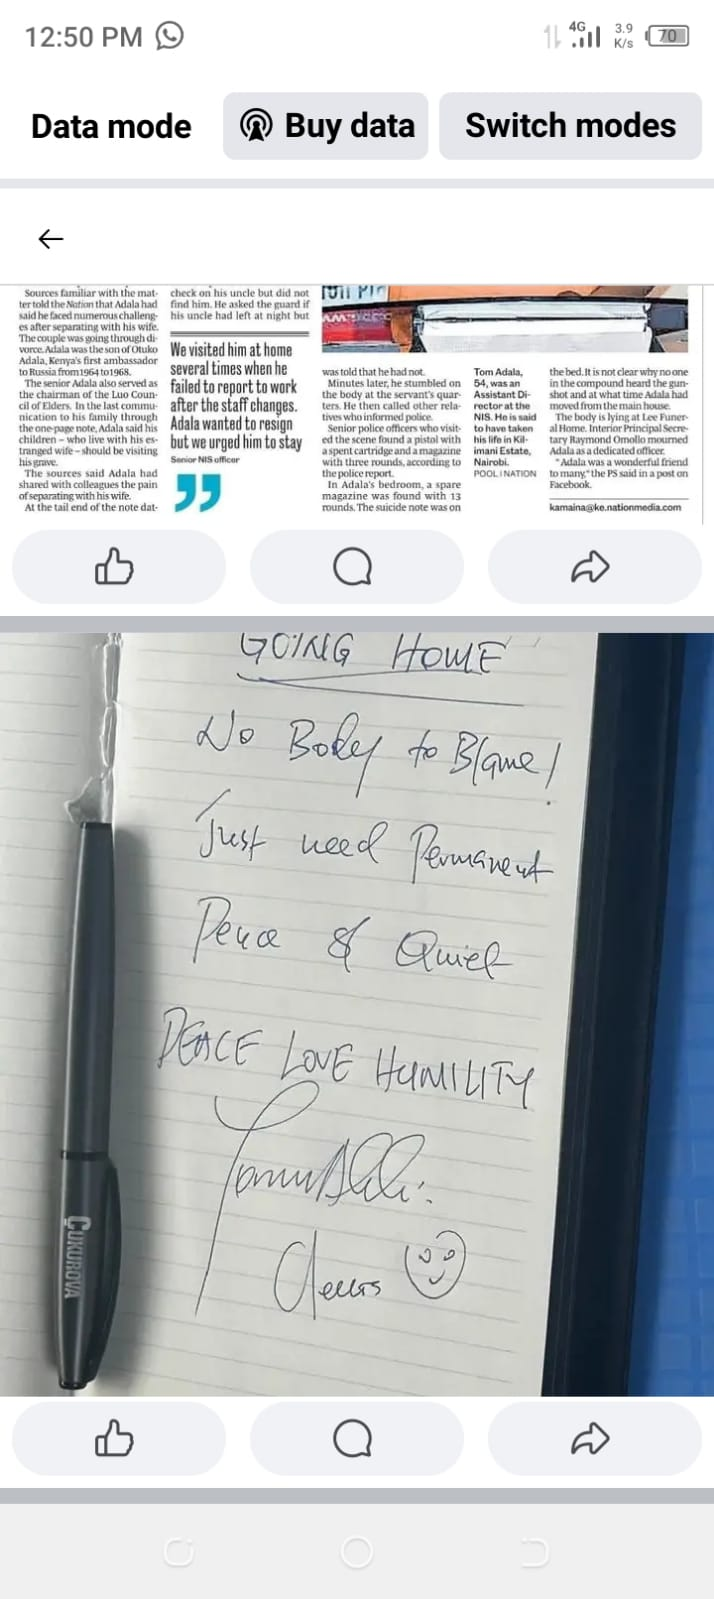 12:50 PM
4G 3.9 K/s 70
Data mode
Buy data
Switch modes
Sources familiar with the mat-
ter told the Nation that Adala had
said he faced numerous challeng-
es after separating with his wife.
The couple was going through di-
vorce. Adala was the son of Otuko
Adala, Kenya's first ambassador
to Russia from 1964 to 1968.
The senior Adala also served as
the chairman of the Luo Coun-
cil of Elders. In the last commu-
nication to his family through
the one-page note, Adala said his
children – who live with his es-
tranged wife – should be visiting
his grave.
The sources said Adala had
shared with colleagues the pain
of separating with his wife.
At the tail end of the note dat-
check on his uncle but did not
find him. He asked the guard if
his uncle had left at night but
We visited him at home
several times when he
failed to report to work
after the staff changes.
Adala wanted to resign
but we urged him to stay
Senior NIS officer
was told that he had not.
Minutes later, he stumbled on
the body at the servant's quar-
ters. He then called other rela-
tives who informed police.
Senior police officers who visit-
ed the scene found a pistol with
a spent cartridge and a magazine
with three rounds, according to
the police report.
In Adala's bedroom, a spare
magazine was found with 13
rounds. The suicide note was on
Tom Adala,
54, was an
Assistant Di-
rector at the
NIS. He is said
to have taken
his life in Kil-
imani Estate,
Nairobi.
POOL | NATION
the bed. It is not clear why no one
in the compound heard the gun-
shot and at what time Adala had
moved from the main house.
The body is lying at Lee Funer-
al Home. Interior Principal Secre-
tary Raymond Omollo mourned
Adala as a dedicated officer.
"Adala was a wonderful friend
to many," the PS said in a post on
Facebook.
kamaina@ke.nationmedia.com
GOING HOME
No Body to Blame!
Just need Permanent
Peace & Quiet
PEACE LOVE HUMILITY
Cheers
ÇUKUROVA